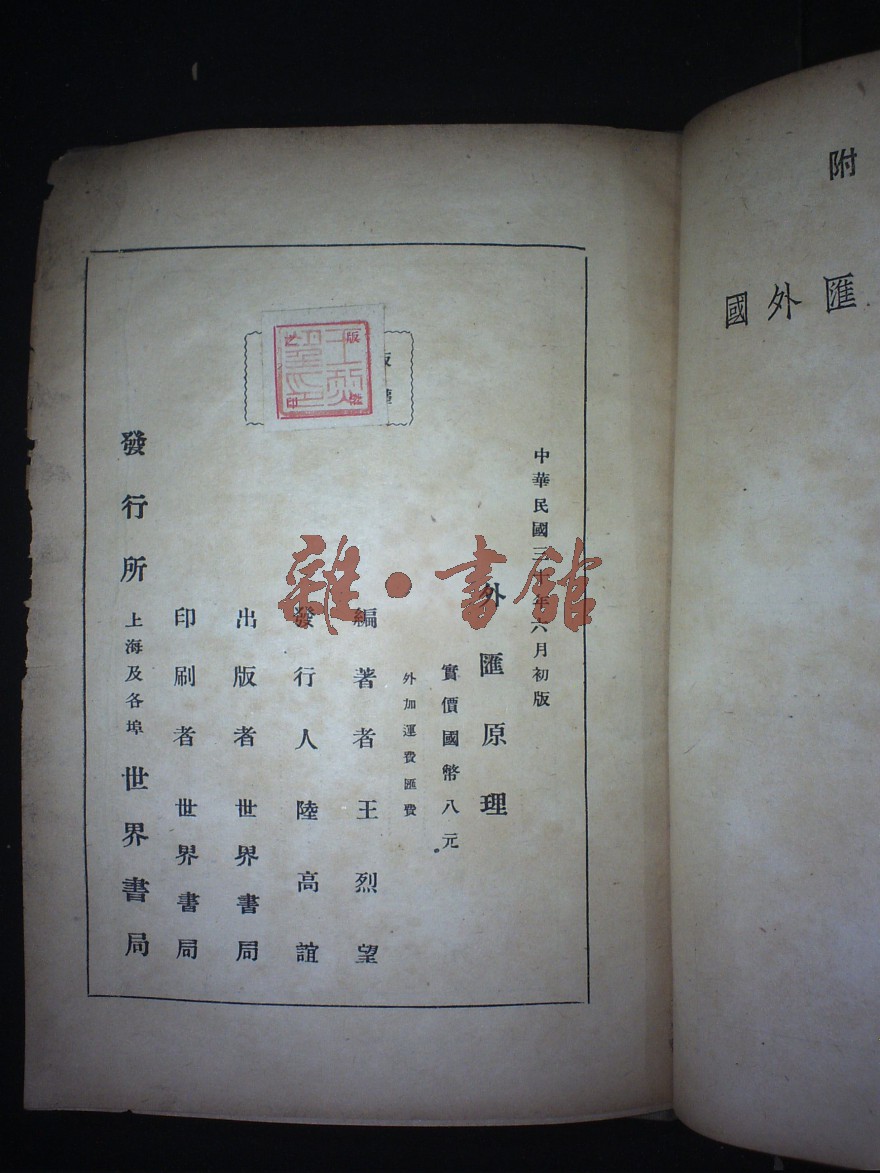 附
國外匯
中華民國三十年六月初版
外匯原理
實價國幣八元
外加運費匯費
編著者 王烈望
發行人 陸高誼
出版者 世界書局
印刷者 世界書局
發行所 上海及各埠 世界書局
雜·書館